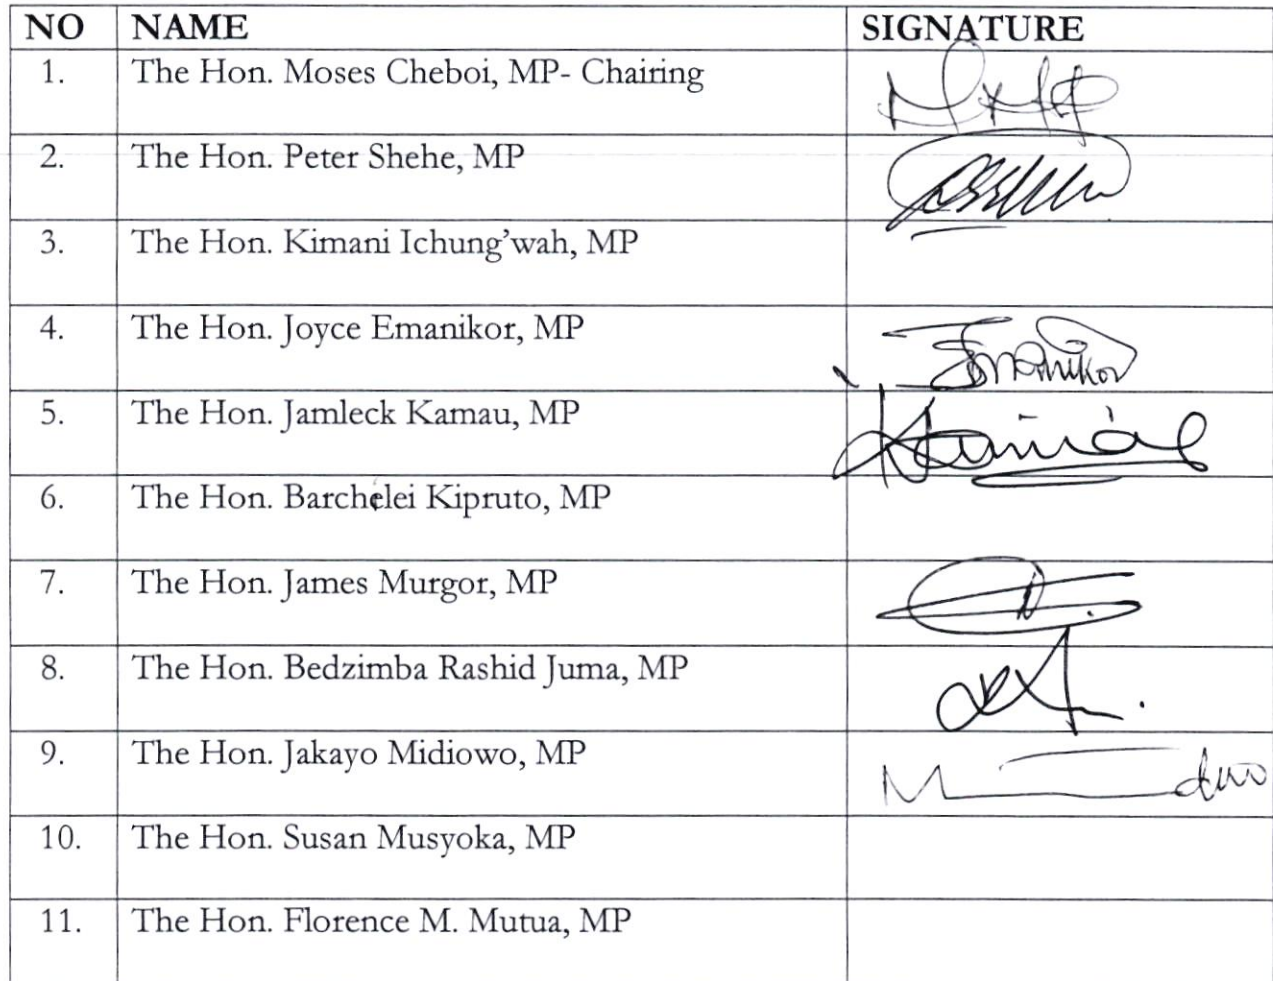 NO NAME SIGNATURE
1. The Hon. Moses Cheboi, MP- Chairing
2. The Hon. Peter Shehe, MP
3. The Hon. Kimani Ichung’wah, MP
4. The Hon. Joyce Emanikor, MP
5. The Hon. Jamleck Kamau, MP
6. The Hon. Barchelei Kipruto, MP
7. The Hon. James Murgor, MP
8. The Hon. Bedzimba Rashid Juma, MP
9. The Hon. Jakayo Midiowo, MP
10. The Hon. Susan Musyoka, MP
11. The Hon. Florence M. Mutua, MP